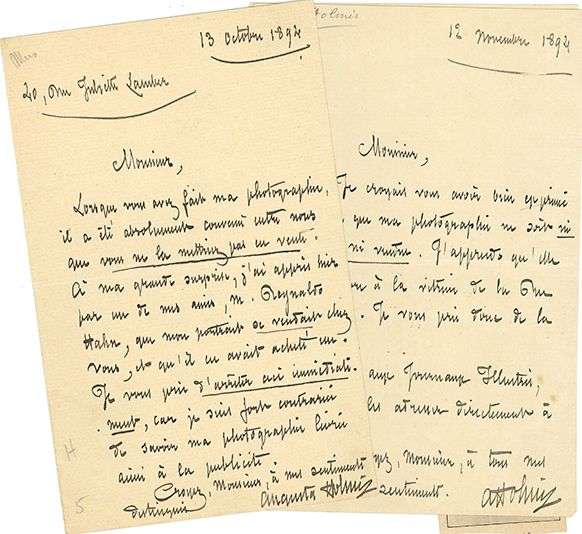 13 Octobre 1894
40, Rue Juliette Lamber
Monsieur,
Lorsque vous avez fait ma photographie,
il a été absolument convenu entre nous
que vous ne la mettriez pas en vente.
À ma grande surprise, j'ai appris hier
par un de mes amis, M. Reynaldo
Hahn, que mon portrait se vendait chez
vous, et qu'il en avait acheté un.
Je vous prie d'arrêter ceci immédiate-
ment, car je suis fort contrariée
de savoir ma photographie livrée
ainsi à la publicité
Croyez, Monsieur, à mes sentiments
distingués
Augusta Holmès
H
5
Holmès
12 Novembre 1894
Monsieur,
Je croyais vous avoir bien exprimé
que ma photographie ne soit ni
ni vendue. J'apprends qu'elle
à la vitrine de la Rue
Je vous prie donc de la
aux Journaux Illustrés,
les adresser directement à
yez, Monsieur, à tous mes
sentiments.
AHolmès